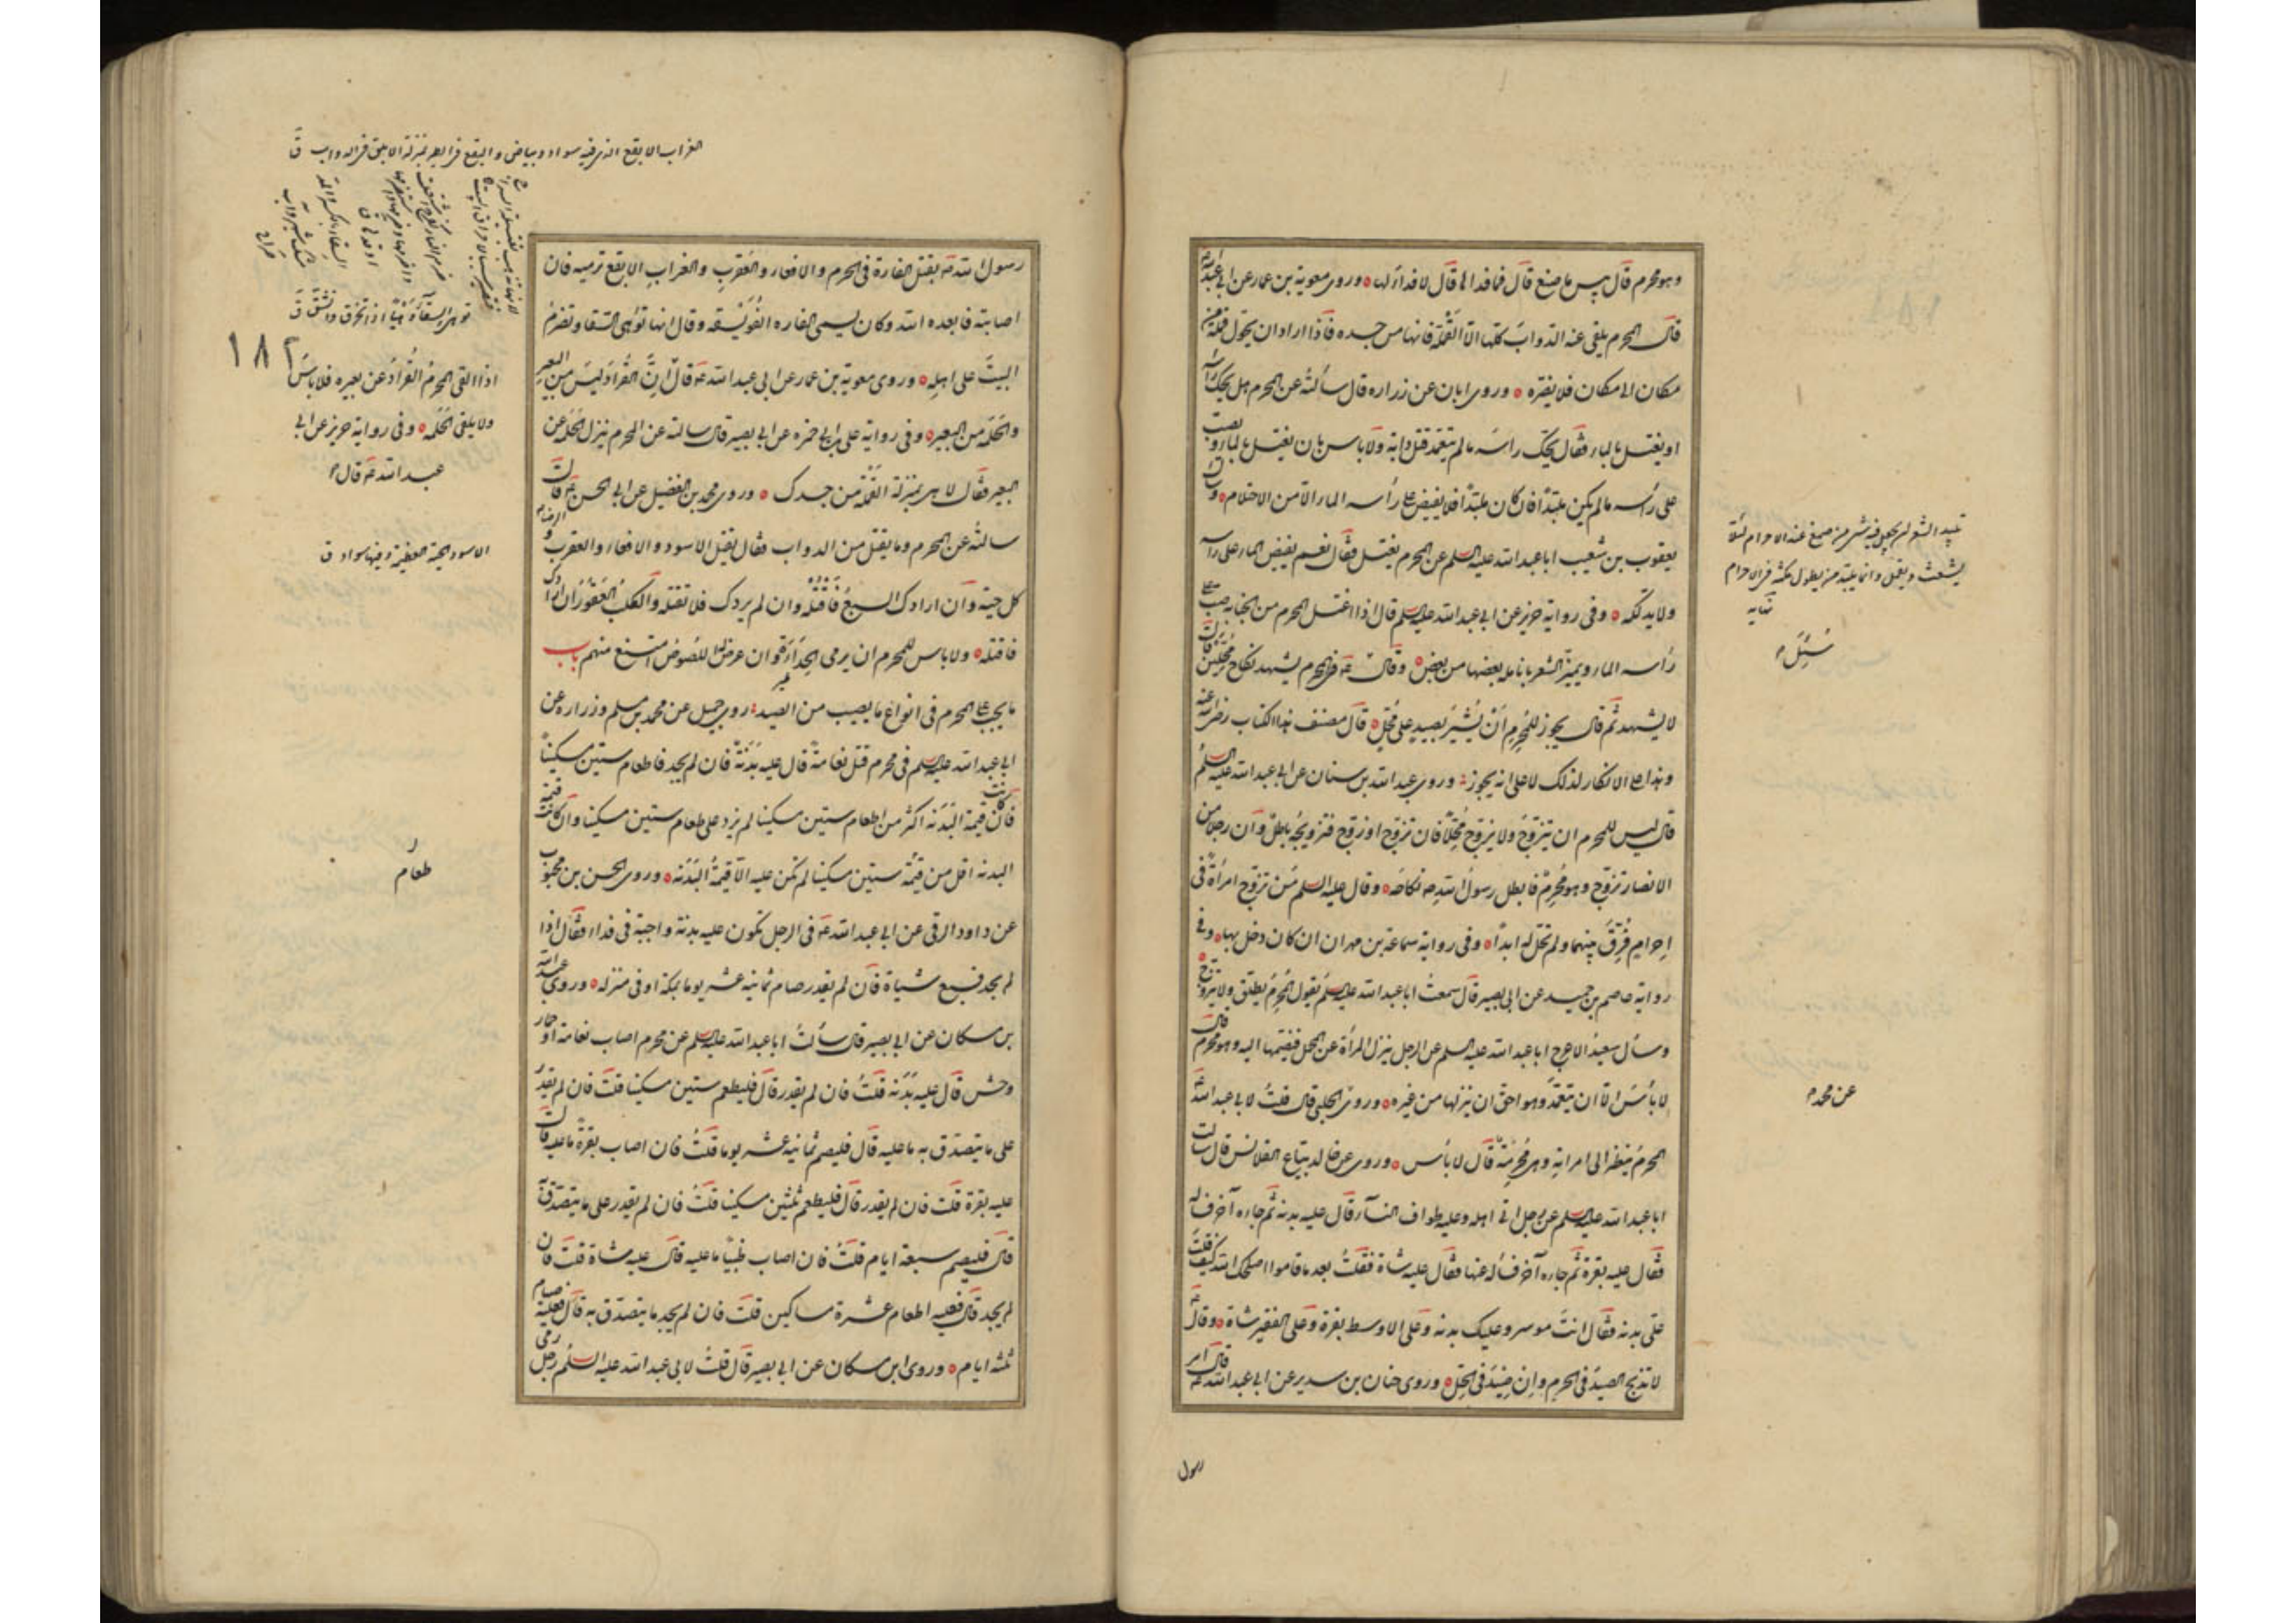 وهو محرم قال بئس ما صنع قال فما فداؤها قال لا فداء لها وروى معوية بن عمار عن ابي عبد الله ع
قال المحرم يلقى عنه الدواب كلها الا القملة فانها من جسده فاذا اراد ان يحول قملة من
مكان الى مكان فلا يضره وروى ابان عن زراره قال سألته عن المحرم هل يحك رأسه
او يغتسل بالماء فقال يحك راسه ما لم يتعمد قتل دابة ولا باس بان يغتسل بالماء ويصب
على رأسه ما لم يكن ملبدًا فان كان ملبدًا فلا يفيض على رأسه الماء الا من الاحتلام وسأل
يعقوب بن شعيب ابا عبد الله عليه السلم عن المحرم يغتسل فقال نعم يفيض الماء على رأسه
ولا يدلكه وفى رواية حريز عن ابي عبد الله عليه السلم قال اذا اغتسل المحرم من الجنابه صب على
رأسه الماء ويميز الشعر بانامله بعضها من بعض وقال ع فى المحرم يشهد نكاح محلين قال
لا يشهد ثم قال يجوز للمحرم ان يشير بصيد على محل قال مصنف هذا الكتاب رضى الله عنه
وهذا على الانكار لذلك لا على انه يجوز وروى عبد الله بن سنان عن ابي عبد الله عليه السلم
قال ليس للمحرم ان يتزوج ولا يزوج محلا فان تزوج او زوج فتزويجه باطل وان رجلا من
الانصار تزوج وهو محرم فابطل رسول الله ص نكاحه وقال عليه السلم من تزوج امرأة فى
احرامه فرق بينهما ولم تحل له ابدًا وفى رواية سماعة بن مهران ان كان دخل بها وفى
رواية عاصم بن حميد عن ابي بصير قال سمعت ابا عبد الله عليه السلم يقول المحرم يطلق ولا يتزوج
وسأل سعيد الاعرج ابا عبد الله عليه السلم عن الرجل ينزل المرأة عن المحمل فيضمها اليه وهو محرم قال
لا بأس الا ان يتعمد وهو احق ان ينزلها من غيره وروى الحلبى قال قلت لابي عبد الله ع
المحرم ينظر الى امراته وهى محرمة قال لا بأس وروى عن خالد بياع القلانس قال سالت
ابا عبد الله عليه السلم عن رجل اتى اهله وعليه طواف النساء قال عليه بدنه ثم جاءه آخر فسأله
فقال عليه بقرة ثم جاءه آخر فسأله عنها فقال عليه شاة فقلت بعد ما قاموا اصلحك الله كيف قلت
على بدنه فقال انت موسر وعليك بدنه وعلى الاوسط بقرة وعلى الفقير شاة وقال ع
لا تذبح الصيد فى الحرم وان صيد فى الحل وروى حنان بن سدير عن ابي عبد الله ع قال امر
رسول
تلبيد الشعر ان يجعل فيه شىء من صمغ عند الاحرام لئلا
يشعث ويقمل وانما يلبد من يطول مكثه فى الاحرام
نهايه
سئل
عن محمد
الغراب الابقع الذى فيه سواد وبياض والبقع فى الطير بمنزلة الابلق فى الدواب ق
١٨٢
رسول الله ص بقتل الفارة فى الحرم والافعاء والعقرب والغراب الابقع ترميه فان
اصابته فابعده الله وكان يسمى الفاره الفويسقه وقال انها توهى السقاء وتضرم
البيت على اهله وروى معوية بن عمار عن ابي عبد الله ع قال ان القراد ليس من البعير
والحلمة من البعير وفى رواية على بن ابى حمزه عن ابي بصير قال سالته عن المحرم ينزل الحلمة عن
البعير فقال لا هى بمنزلة القملة من جسدك وروى محمد بن الفضيل عن ابي الحسن ع قال
الرضا
سالته عن المحرم وما يقتل من الدواب فقال يقتل الاسود والافعاء والعقرب و
كل حية وان ارادك السبع فاقتله وان لم يردك فلا تقتله والكلب العقور ان ارادك
فاقتله ولا باس للمحرم ان يرمى الحدأة وان عرض له اللصوص امتنع منهم باب
ما يجب على المحرم فى انواع ما يصيب من الصيد روى جميل عن محمد بن مسلم وزراره عن
ابي عبد الله عليه السلم فى محرم قتل نعامة قال عليه بدنة فان لم يجد فاطعام ستين مسكينًا
فان كانت قيمة البدنه اكثر من اطعام ستين مسكينا لم يزد على طعام ستين مسكينا وان كانت قيمة
البدنه اقل من قيمة ستين مسكينا لم تكن عليه الا قيمة البدنه وروى الحسن بن محبوب
عن داود الرقى عن ابي عبد الله ع فى الرجل تكون عليه بدنة واجبة فى فداء فقال اذا
لم يجد فسبع شياة فان لم يقدر صام ثمانية عشر يوما بمكة او فى منزله وروى عبد الله
بن مسكان عن ابي بصير قال سألت ابا عبد الله عليه السلم عن محرم اصاب نعامة او حمار
وحش قال عليه بدنه قلت فان لم يقدر قال فليطعم ستين مسكينا قلت فان لم يقدر
على ما يتصدق به ما عليه قال فليصم ثمانيه عشر يوما قلت فان اصاب بقرة ما عليه قال
عليه بقرة قلت فان لم يقدر قال فليطعم ثلثين مسكينا قلت فان لم يقدر على ما يتصدق
قال فليصم سبعة ايام قلت فان اصاب ظبيا ما عليه قال عليه شاة قلت فان
لم يجد قال فعليه اطعام عشرة مساكين قلت فان لم يجد ما يتصدق به قال فعليه صيام
ثلثه ايام وروى ابن مسكان عن ابي بصير قال قلت لابي عبد الله عليه السلم رجل رمى
توهى السقاء وهيًا اذا تخرق وانشق ق
اذا القى المحرم القراد عن بعيره فلا باس
ولا يلقى الحلمه وفى رواية حريز عن ابي
عبد الله ع قال
الاسود الحية العظيمة وفيها سواد ق
طعام